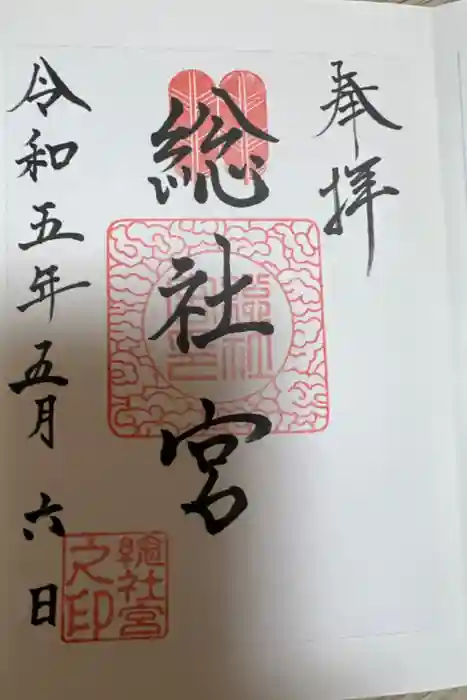 奉拝
総社宮
令和五年五月六日
總社宮之印